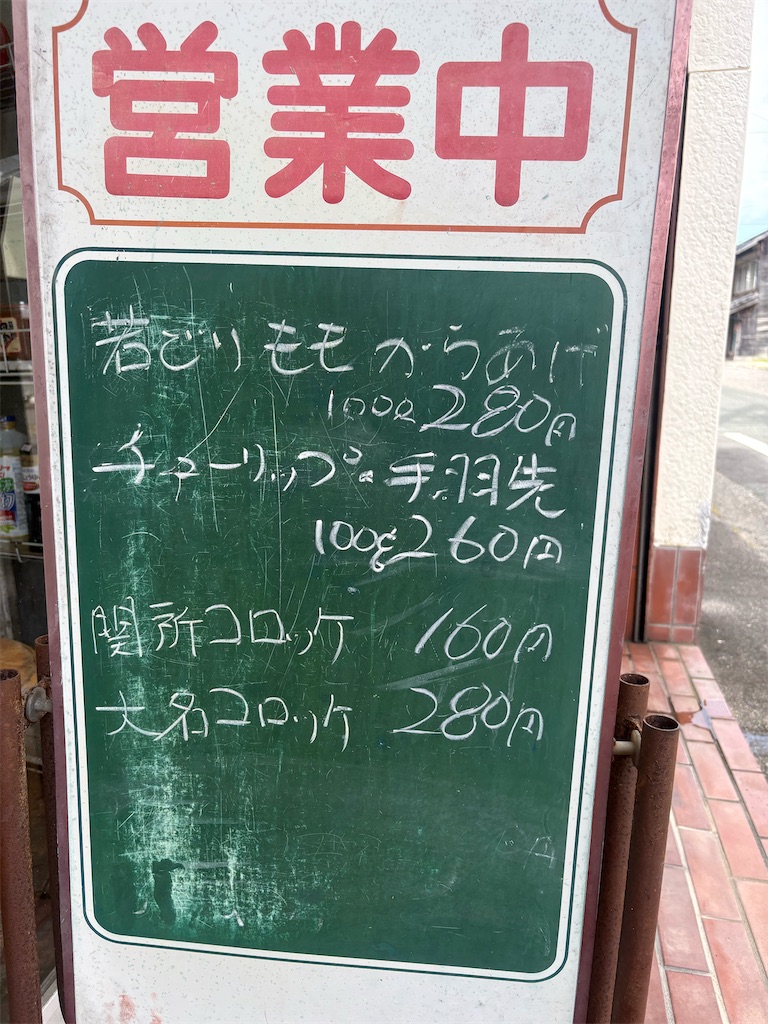 営業中
若どりももからあげ
100g 280円
チューリップ・手羽先
100g 260円
関所コロッケ 160円
大名コロッケ 280円